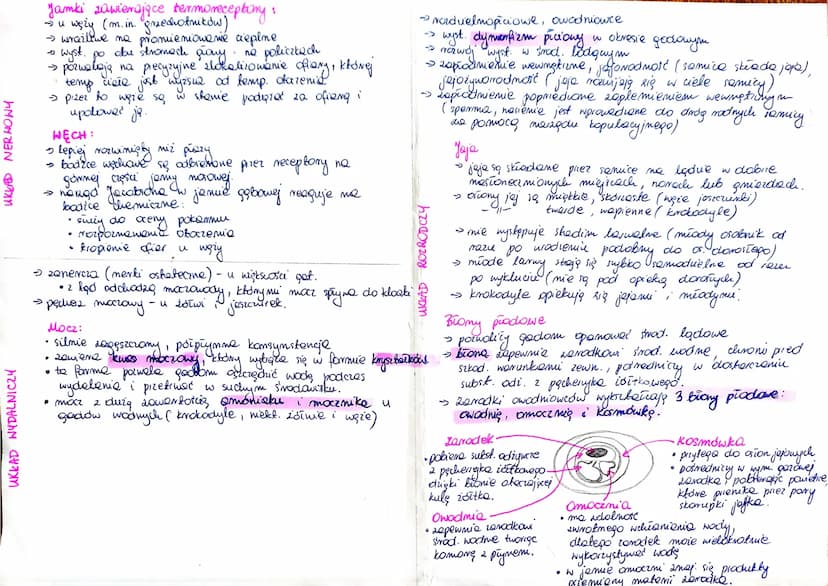 UKŁAD NERWOWY
Jamki zawierające termoreceptory:
→ u węży (m.in. grzechotników)
→ wrażliwe na promieniowanie cieplne
→ wyst. po obu stronach głowy - na policzkach
→ pozwalają na precyzyjne zlokalizowanie ofiary, której
temp ciała jest wyższa od temp. otoczenia
→ przez to węże są w stanie podążać za ofiarą i
upolować ją.
WĘCH:
→ lepiej rozwinięty niż płazy
→ bodźce węchowe są odbierane przez receptory na
górnej części jamy nosowej.
→ narząd Jacobsona w jamie gębowej reaguje na
bodźce chemiczne:
• służy do oceny pokarmu
• rozpoznawania otoczenia
• tropienie ofiar u węży
UKŁAD WYDALNICZY
→ zanercza (nerki ostateczne) - u większości gat.
• z nad odchodzą moczowody, którymi mocz spływa do kloaki
→ pęcherz moczowy - u żółwi i jaszczurek.
Mocz:
• silnie zagęszczony, półpłynna konsynstencja
• zawiera kwas moczowy, który wybija się w formie kryształków
• ta forma pozwala gadom oszczędzić wodę podczas
wydalania i przetrwać w suchym środowisku.
• mocz z dużą zawartością amoniaku i mocznika u
gadów wodnych (krokodyle, niekt. żółwie i węże)
UKŁAD ROZRODCZY
→ rozdzielnopłciowe, owodniowce
→ wyst. dymorfizm płciowy w okresie godowym
→ rozwój wyst. w środ. lądowym
→ zapłodnienie wewnętrzne, jajorodność (samica składa jaja),
jajożyworodność (jaja rozwijają się w ciele samicy)
→ zapłodnienie poprzedzone zaplemnieniem wewnętrznym
(sperma, nasienie jest wprowadzone do dróg rodnych samicy
za pomocą narządu kopulacyjnego)
Jaja
→ jaja są składane przez samice na lądzie w dobrze
nasłonecznionych miejscach, norach lub gniazdach.
→ osłony jaj są miękkie, skórzaste (węże jaszczurki)
-"- twarde, wapienne (krokodyle)
→ nie występuje stadim larwalne (młody osobnik od
razu po urodzenie podobny do os. dorosłego)
→ młode larwy stają się szybko samodzielne od razu
po wykluciu (nie są pod opieką dorosłych)
→ krokodyle opiekują się jajami i młodymi.
Błony płodowe
→ pozwoliły gadom opanować środ. lądowe
→ błona zapewnia zarodkowi środ. wodne, chroni przed
szkod. warunkami zewn., pośredniczy w dostarczaniu
subst. odż. z pęcherzyka żółtkowego.
→ zarodki owodniowców wykształcają 3 błony płodowe:
owodnią, omocznią i kosmówką.
Zarodek
• pobiera subst. odżywcze
z pęcherzyka żółtkowego
dzięki błonie otaczającej
kulę żółtka.
Owodnia
• zapewnia zarodkowi
środ. wodne tworząc
komorę z płynem.
Kosmówka
• przylega do osłon jajowych
• pośredniczy w wym. gazowej
zarodka, pobierając powietrze,
które przenika przez pory
skorupki jajka.
Omocznia
• ma zdolność
zwrotnego wchłaniania wody,
dlatego zarodek może wielokrotnie
wykorzystywać wodę
• w jamie omoczni znaj. się produkty
przemiany materii zarodka.